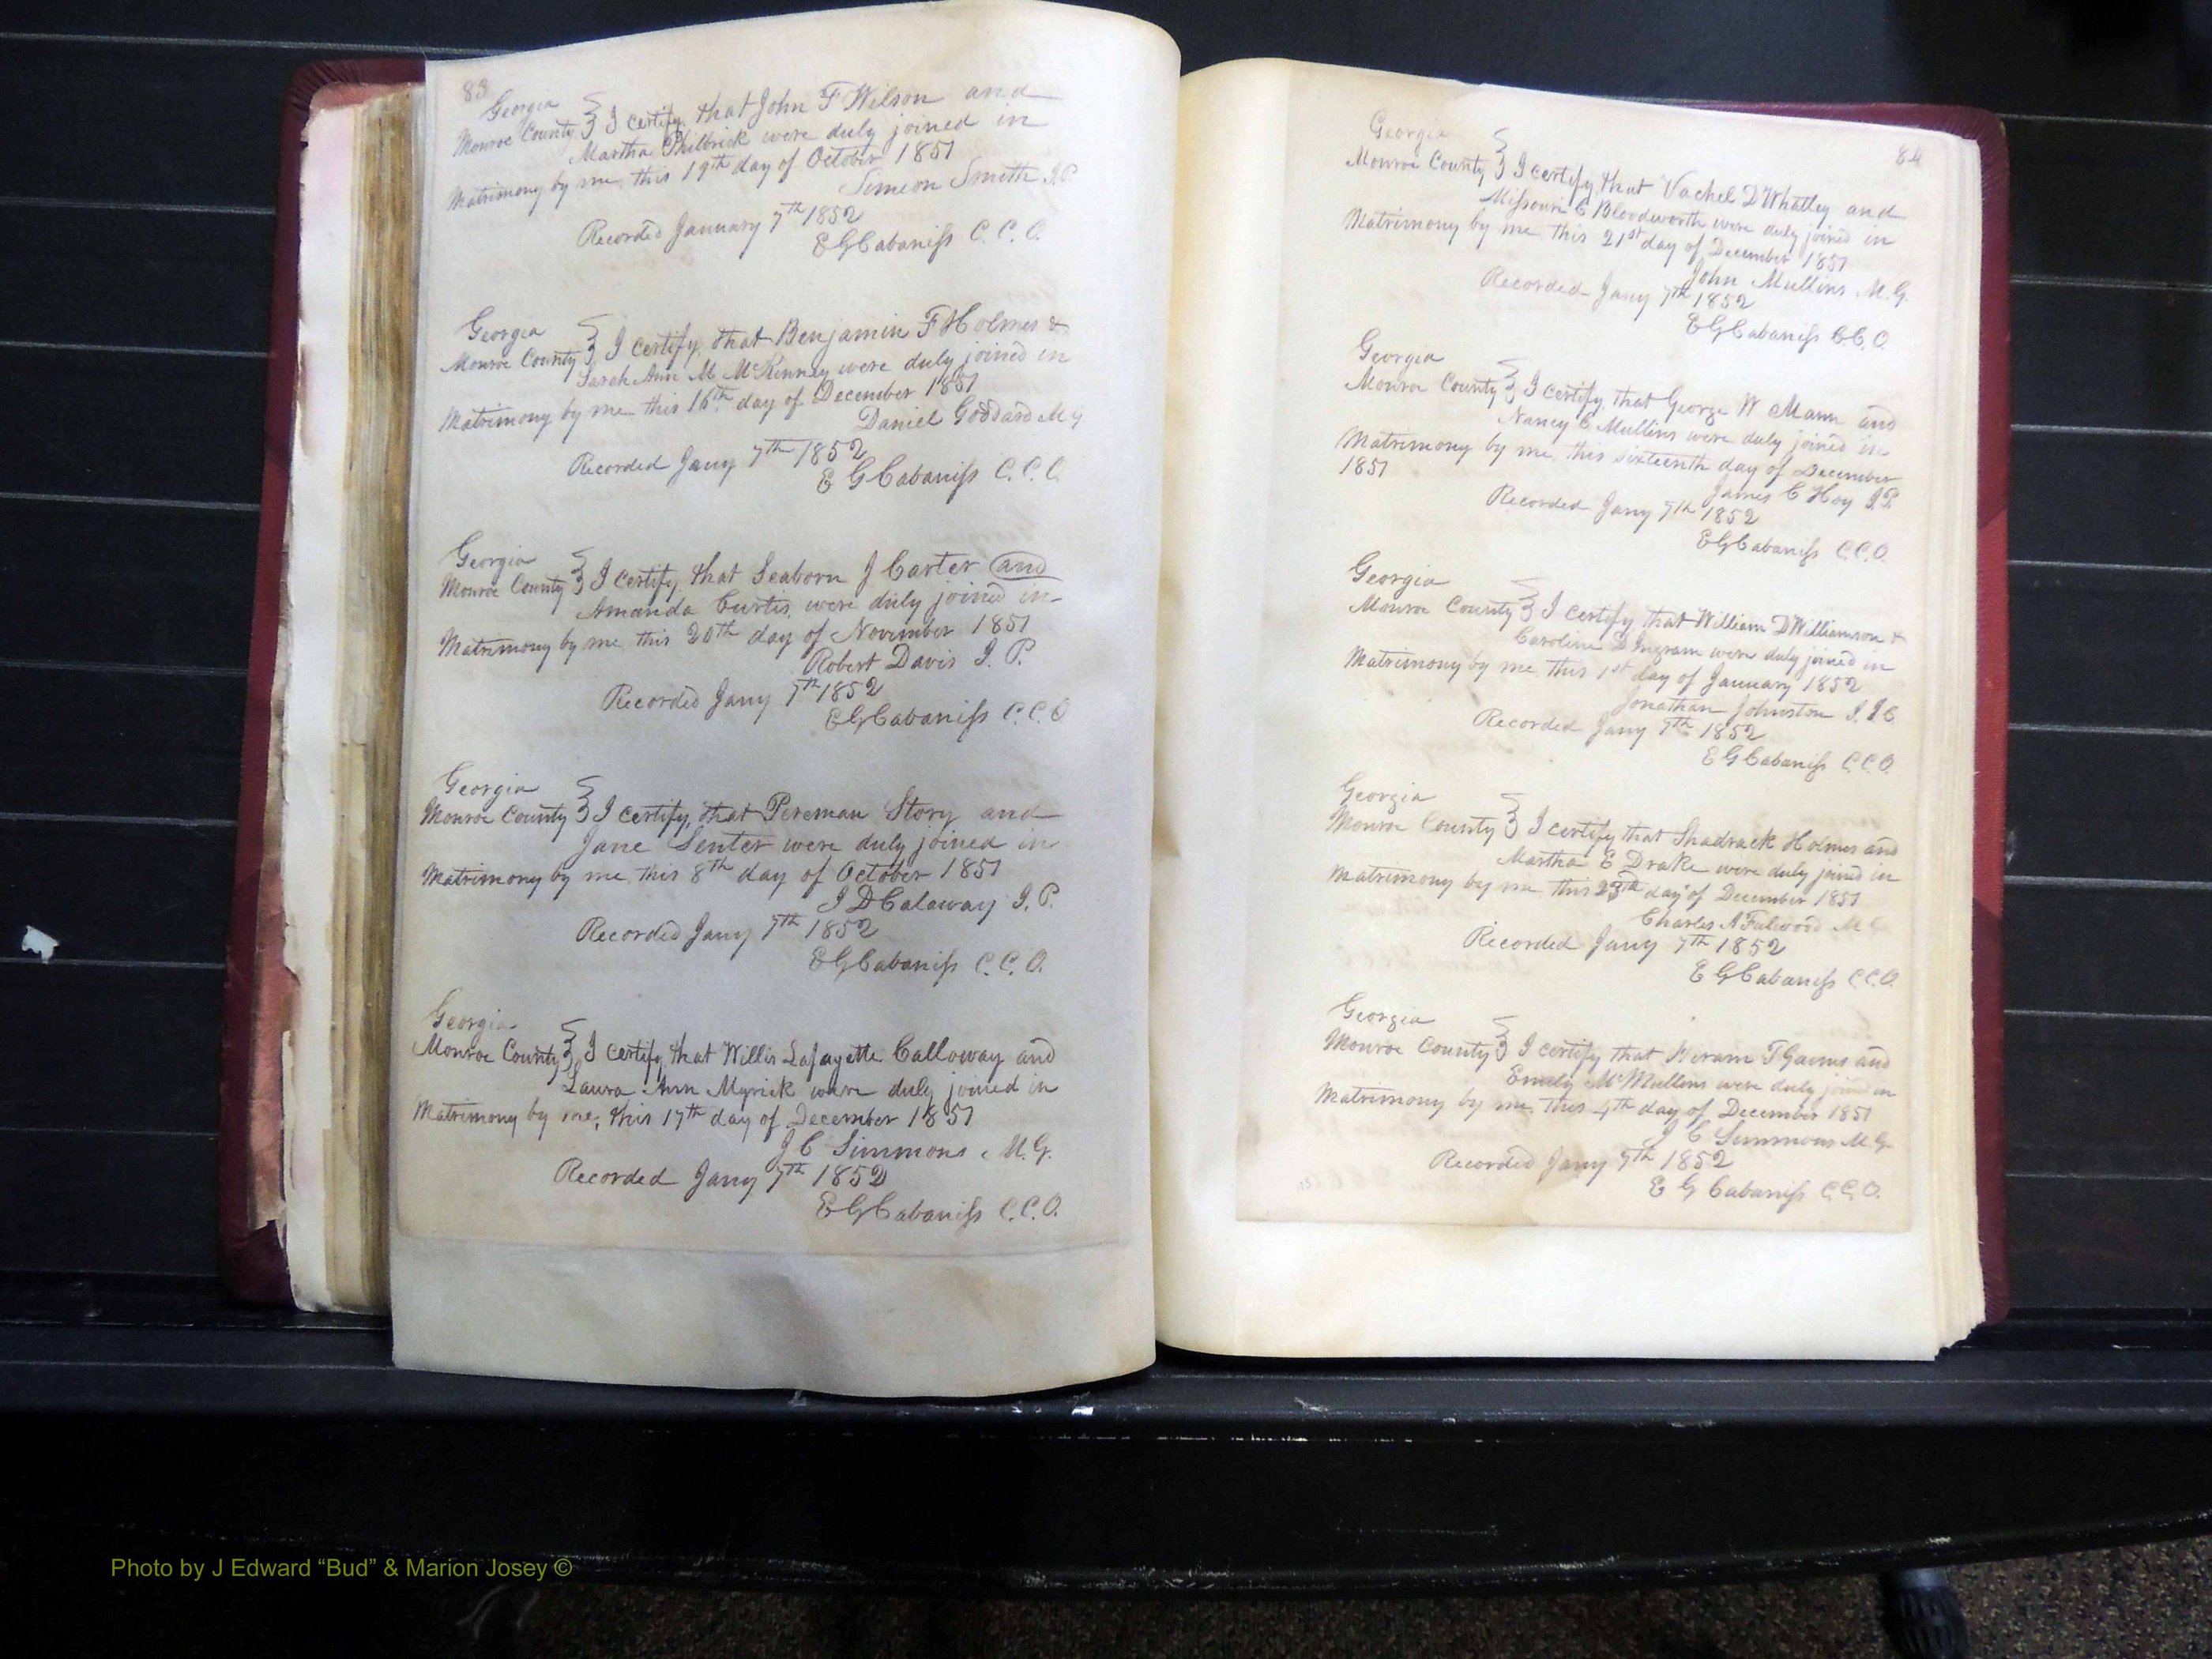 83
Georgia
Monroe County } I certify that John F Wilson and
Martha Philbrick were duly joined in
Matrimony by me this 19th day of October 1851
Simeon Smith J.P.
Recorded January 7th 1852
E G Cabaniss C.C.O.
Georgia
Monroe County } I certify that Benjamin F Holmes &
Sarah Ann M McKinney were duly joined in
Matrimony by me this 16th day of December 1851
Daniel Goddard M G
Recorded Jany 7th 1852
E G Cabaniss C.C.O.
Georgia
Monroe County } I certify that Seaborn J Carter and
Amanda Curtis were duly joined in
Matrimony by me this 20th day of November 1851
Robert Davis J. P.
Recorded Jany 7th 1852
E G Cabaniss C.C.O
Georgia
Monroe County } I certify, that Pereman Story and
Jane Senter were duly joined in
Matrimony by me this 8th day of October 1851
J D Calaway J. P.
Recorded Jany 7th 1852
E G Cabaniss C.C.O.
Georgia
Monroe County } I certify that Willis Lafayette Calloway and
Laura Ann Myrick were duly joined in
Matrimony by me, this 17th day of December 1851
J C Simmons M.G.
Recorded Jany 7th 1852
E G Cabaniss C.C.O.
84
Georgia
Monroe County } I certify that Vachel D Whatley and
Missouri C Bloodworth were duly joined in
Matrimony by me this 21st day of December 1851
John Mullins M.G.
Recorded Jany 7th 1852
E G Cabaniss C.C.O.
Georgia
Monroe County } I certify that George W Mann and
Nancy C Mullins were duly joined in
Matrimony by me this sixteenth day of December
1851
James C Hoy J.P.
Recorded Jany 7th 1852
E G Cabaniss C.C.O.
Georgia
Monroe County } I certify that William D Williamson &
Caroline D Ingram were duly joined in
Matrimony by me this 1st day of January 1852
Jonathan Johnston J.I.C.
Recorded Jany 7th 1852
E G Cabaniss C.C.O.
Georgia
Monroe County } I certify that Shadrack Holmes and
Martha E Drake were duly joined in
Matrimony by me this 23th day of December 1851
Charles A Fulwood M G
Recorded Jany 7th 1852
E G Cabaniss C.C.O.
Georgia
Monroe County } I certify that Hiram T Gaines and
Emily McMullins were duly joined in
Matrimony by me, this 4th day of December 1851
J C Simmons M.G.
Recorded Jany 7th 1852
E G Cabaniss C.C.O.
Photo by J Edward “Bud” & Marion Josey ©